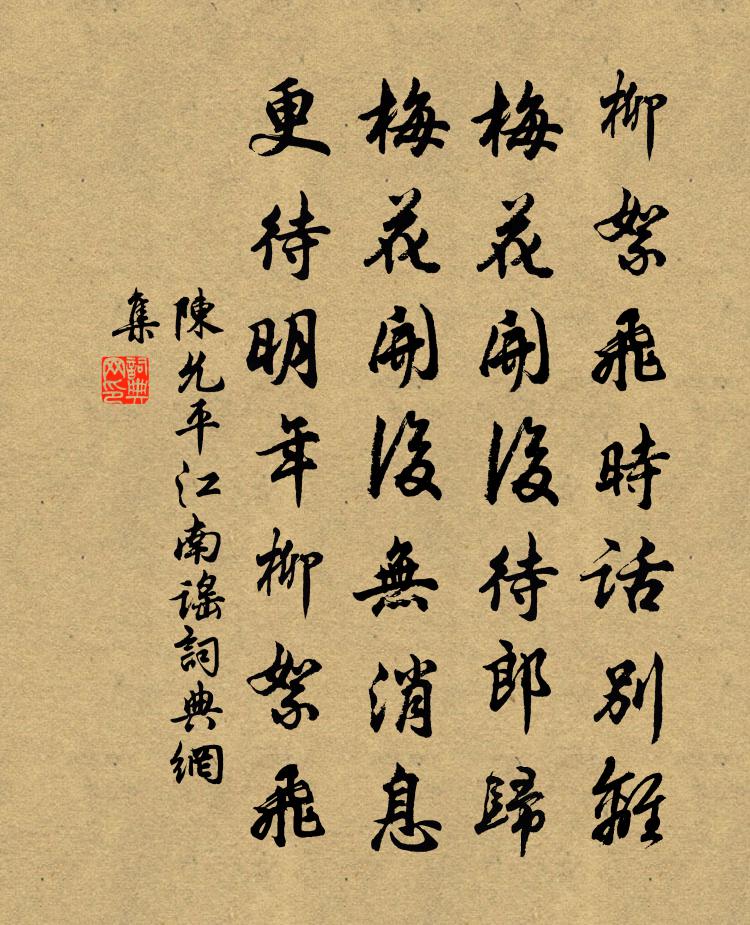 柳絮飛時話別離
梅花開後待郎歸
梅花開後無消息
更待明年柳絮飛
陳允平江南謠詞典網
集
詞典
网印